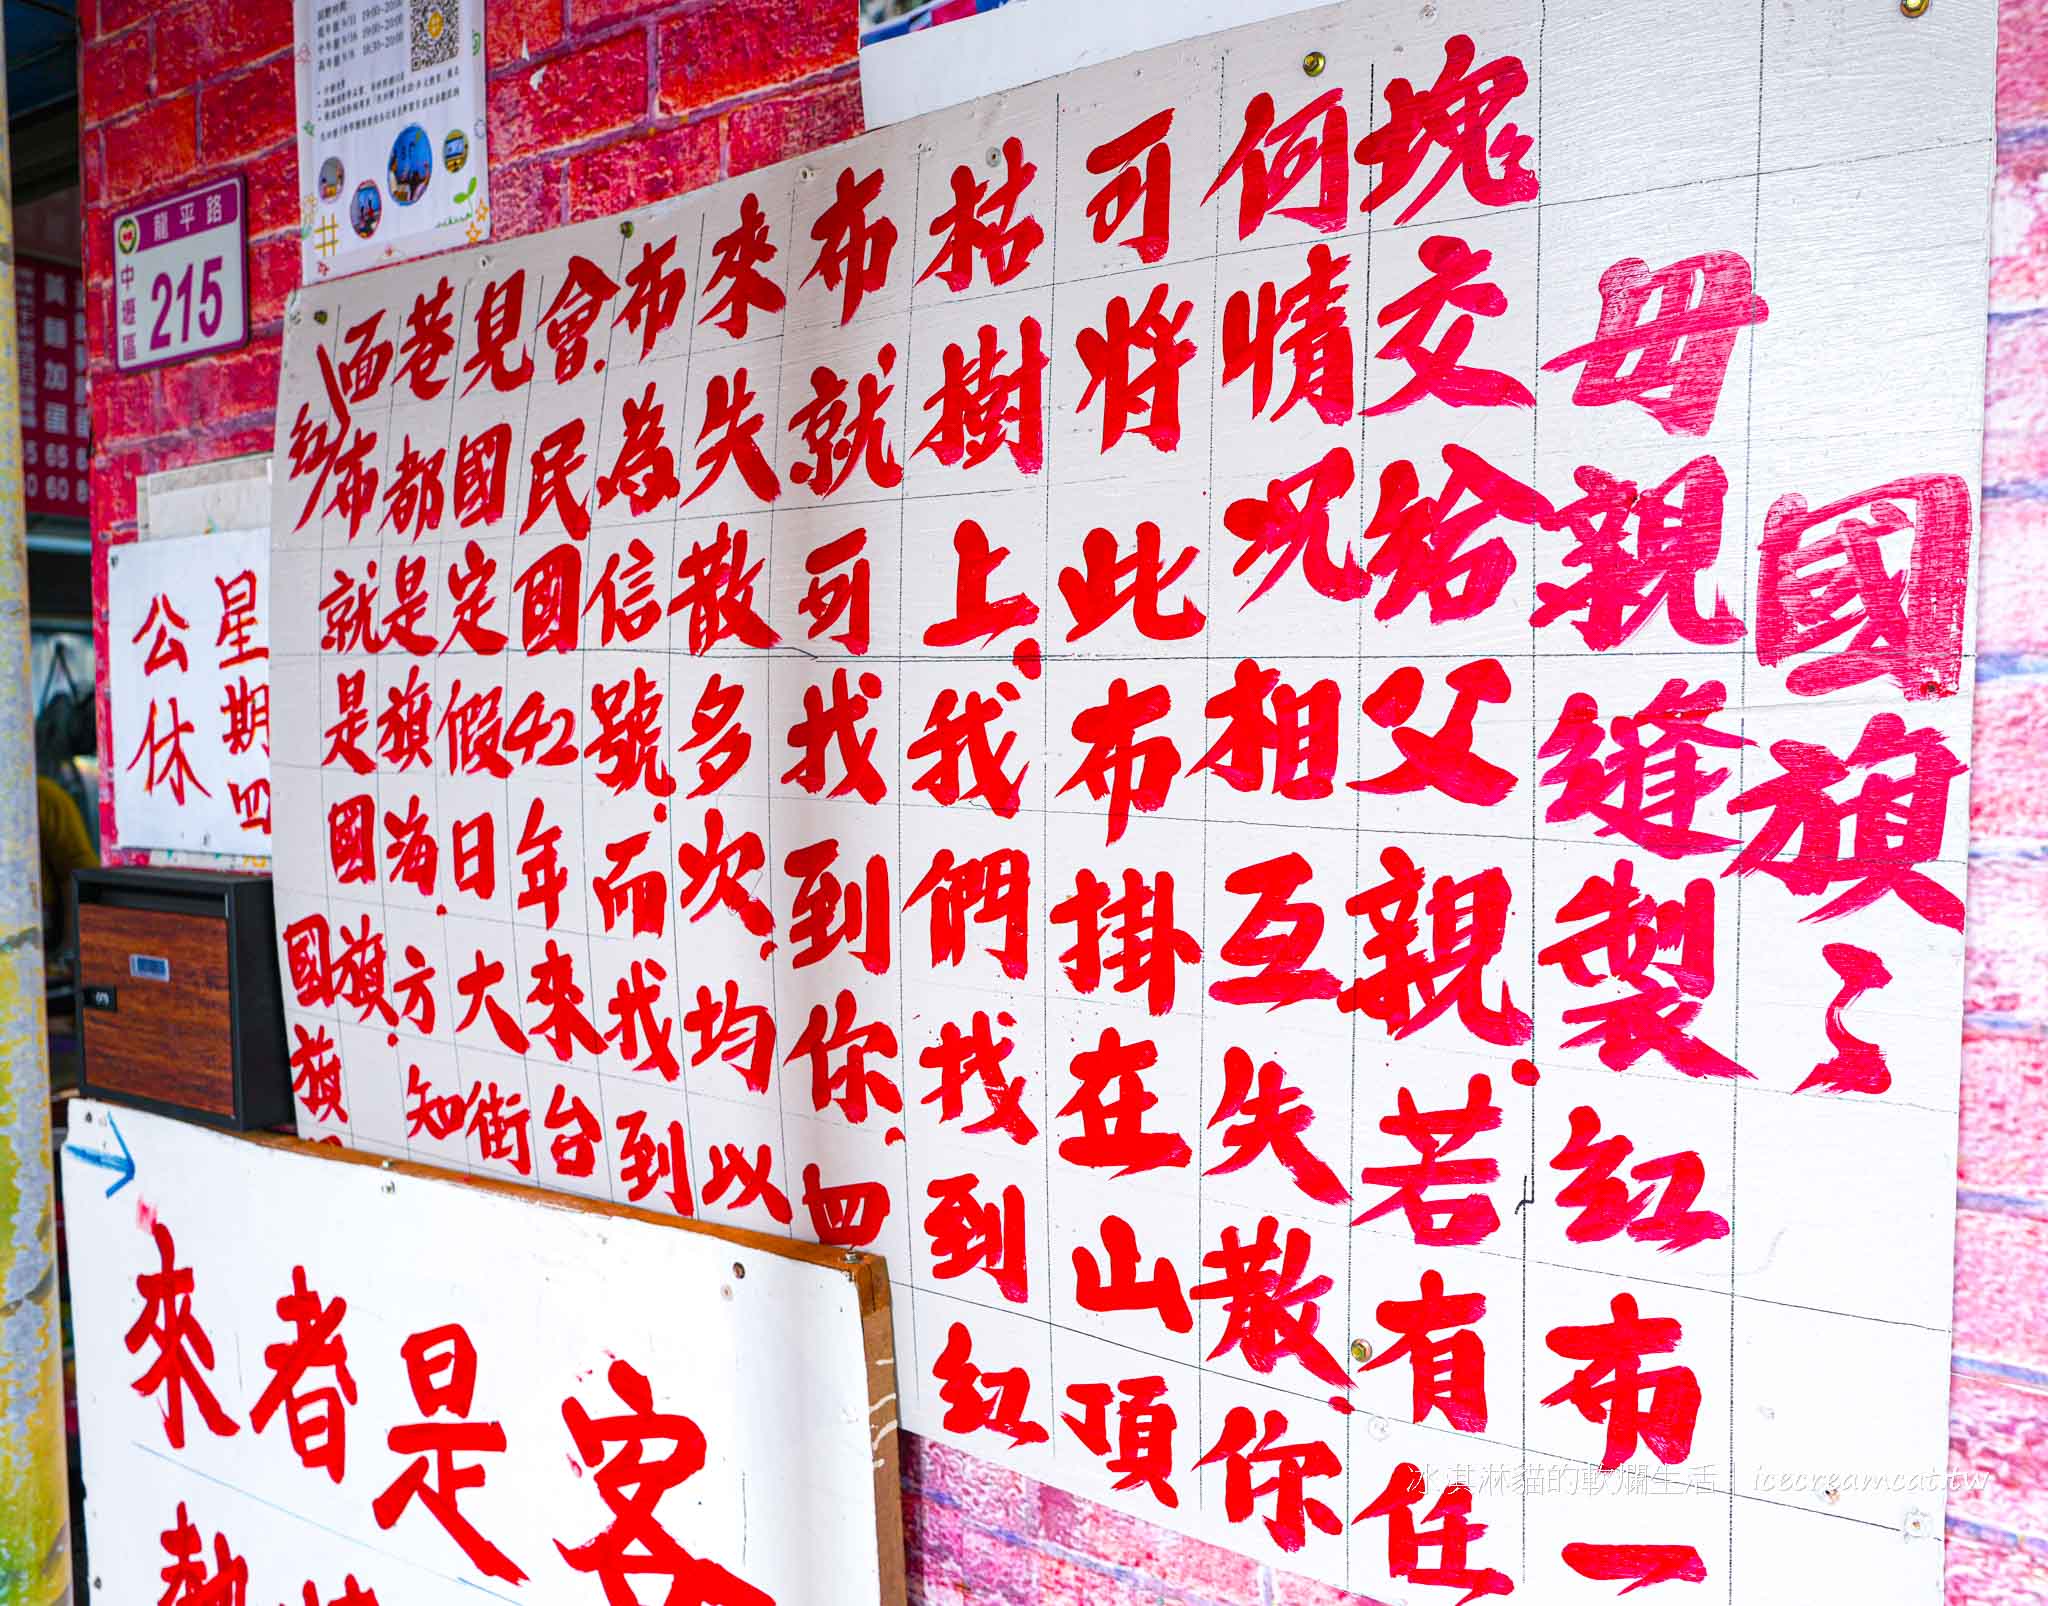 國旗：
母親縫製紅布一
塊交給父親.若有任
何情況相互失散.你
可將此布掛在山頂
枯樹上.我們找到紅
布就可找到你.四
來失散多次.均以
布為信號.而找到
會.民國42年來台
見國定假日大街
巷都是旗海.方知
紅
面布就是國旗.
國旗
星期四
公休
龍平路
中壢區
215
來者是客
冰淇淋貓的軟爛生活 icecreamcat.tw